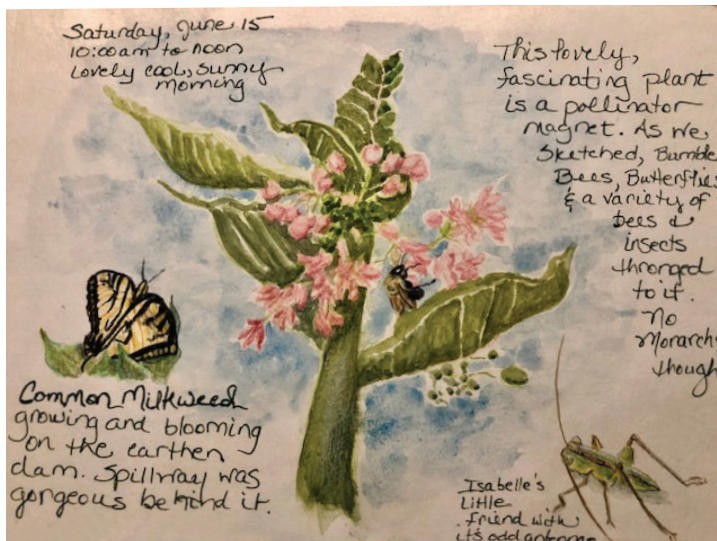 Saturday, June 15
10:00am to noon
Lovely cool, sunny
morning
This lovely,
fascinating plant
is a pollinator
magnet. As we
Sketched, Bumble
Bees, Butterflies
& a variety of
bees &
insects
thronged
to it.
No
Monarch
though
Common Milkweed
growing and blooming
on the earthen
dam. Spillway was
gorgeous behind it.
Isabelle's
Little
friend with
it's odd antennae